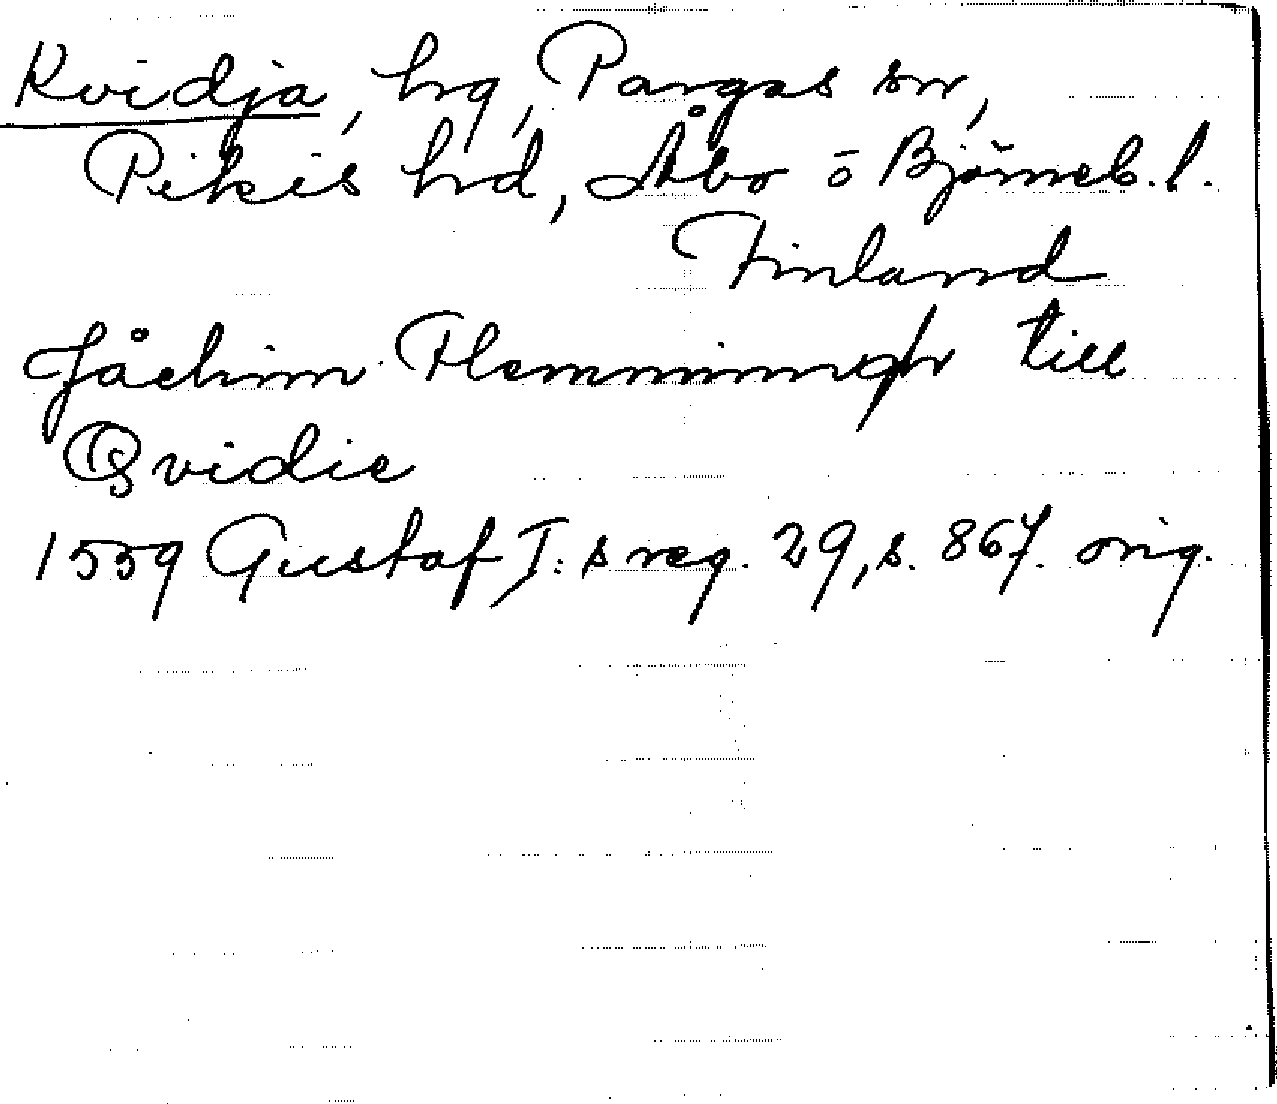 Kvidja, hg, Pargas sn,
Pikis hd, Åbo ō Björneb. l.
Finland
Jåchim Flemmingh till
Qvidie
1559 Gustaf I:s reg. 29, s. 867. orig.